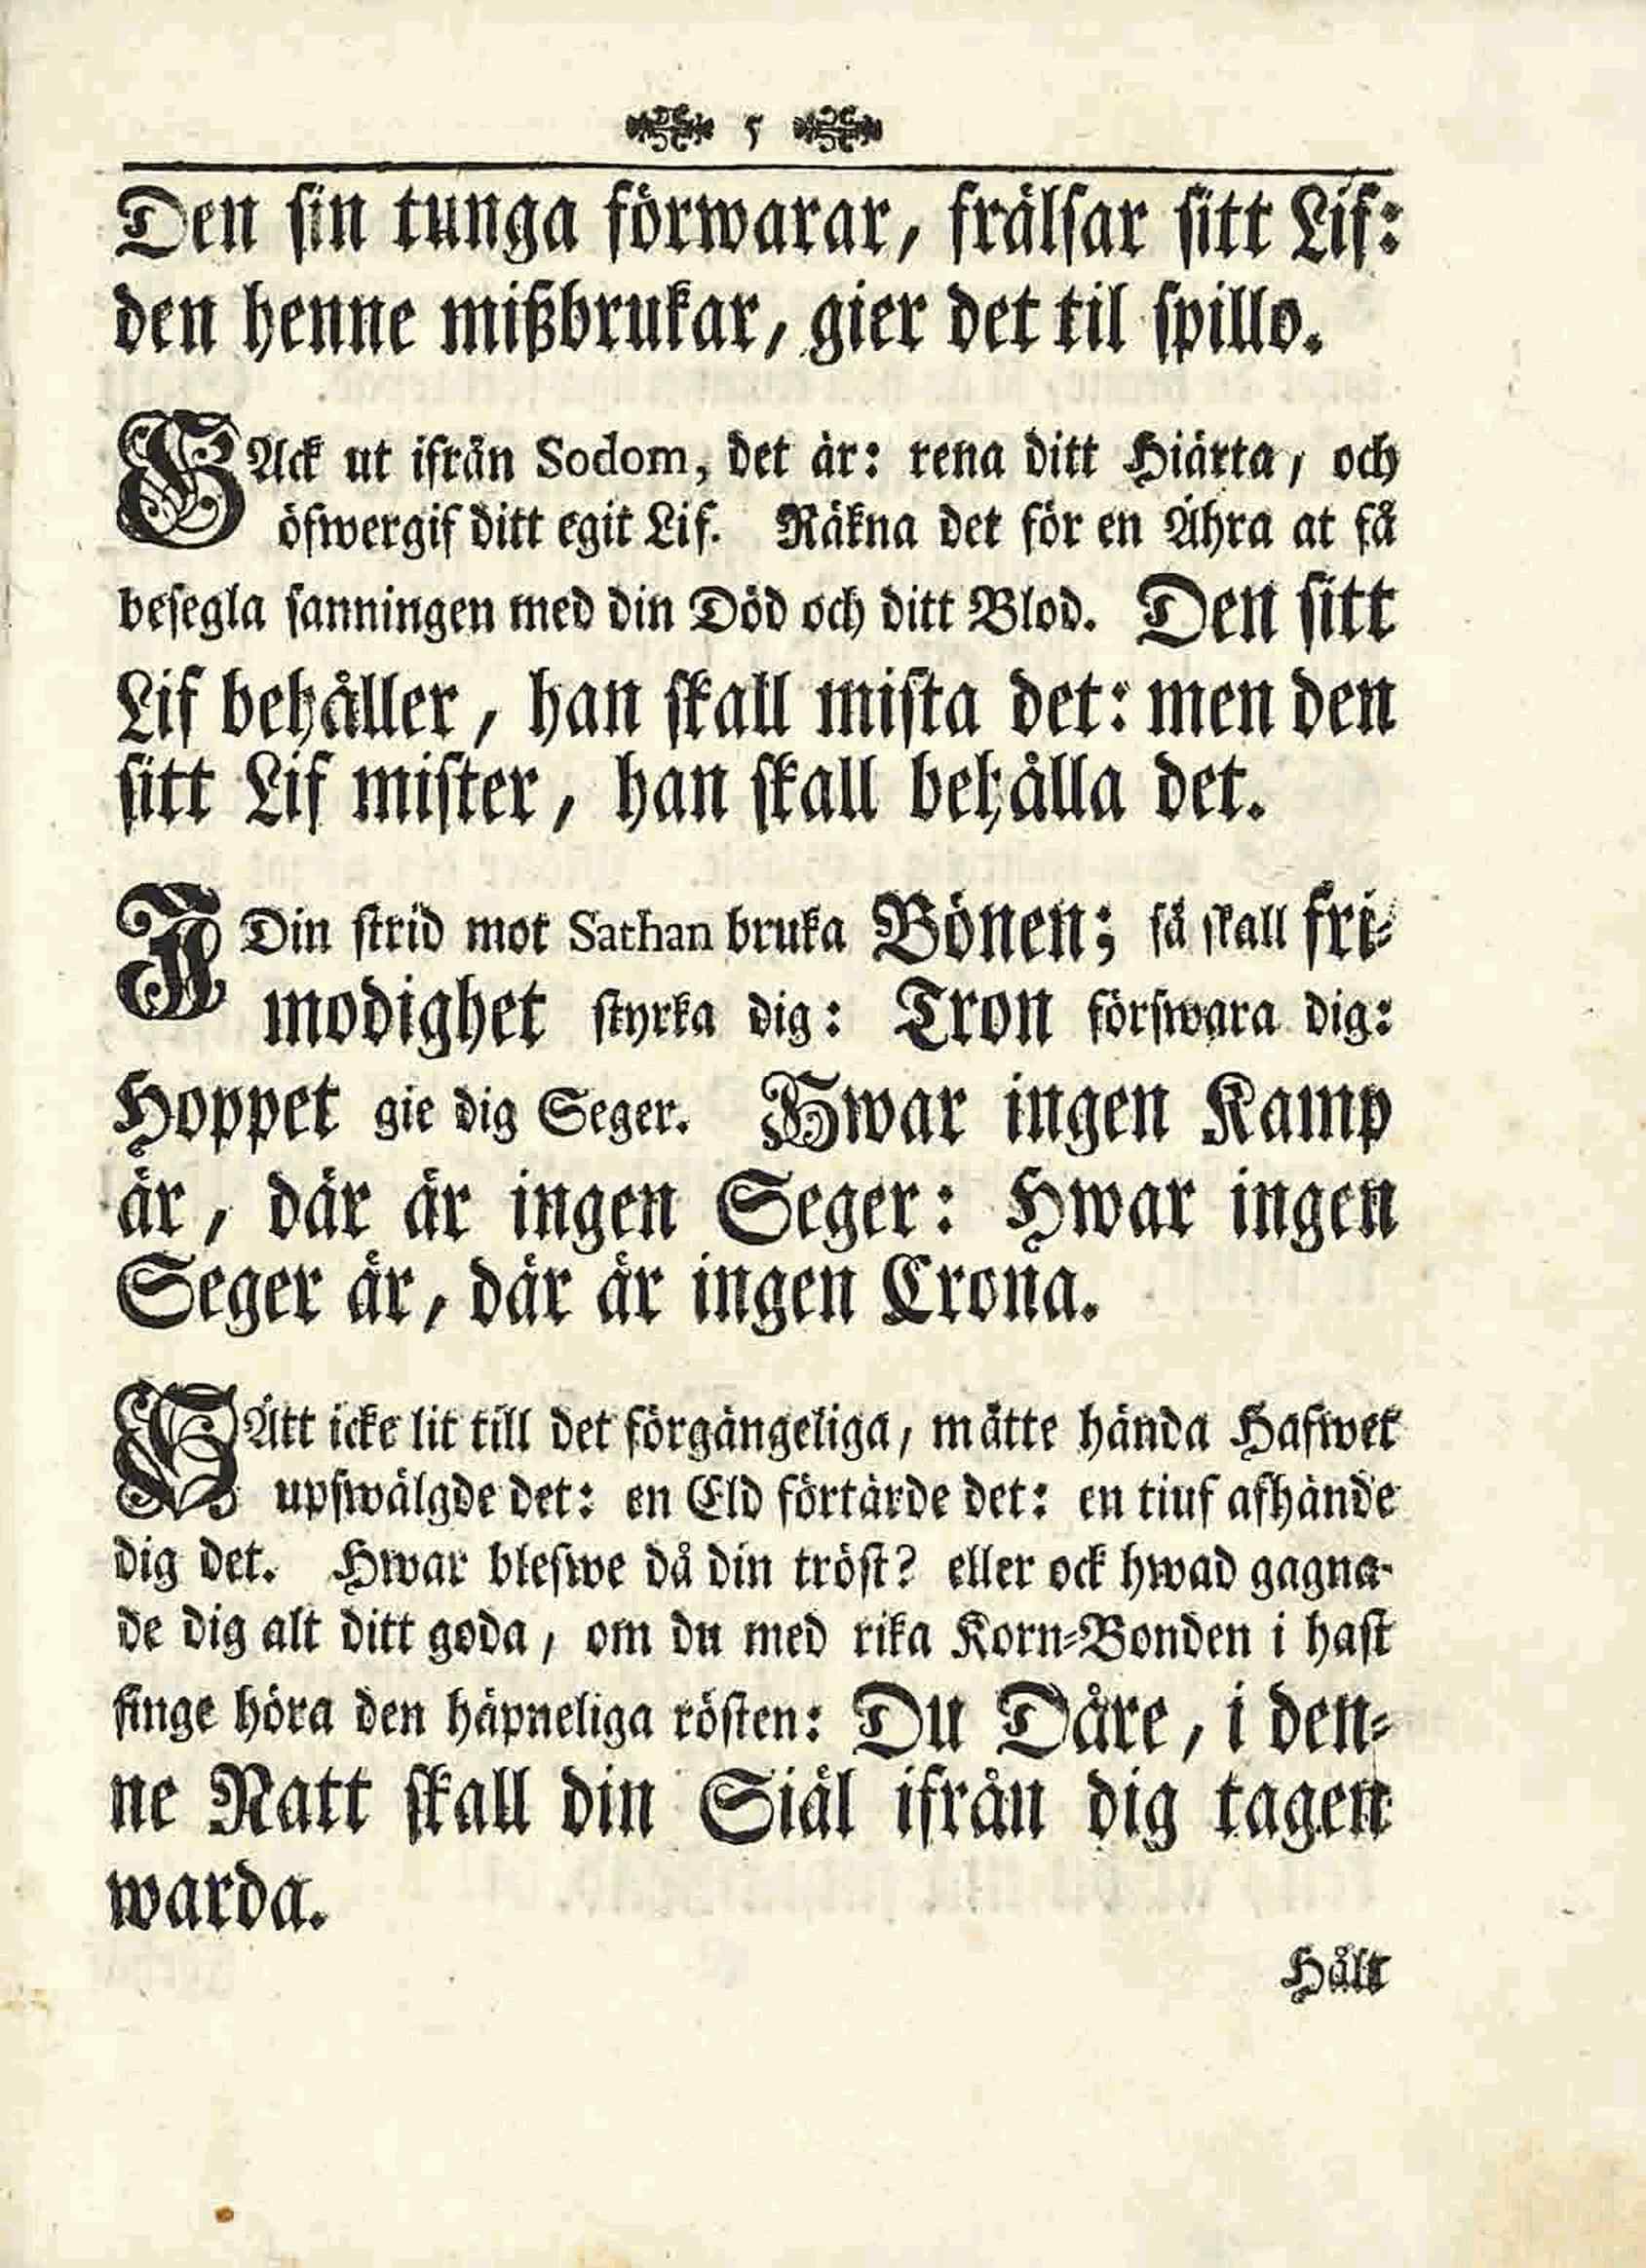 5
Den sin tunga förwarar, frälsar sitt Lif:
den henne mißbrukar, gier det til spillo.
GAck ut ifrån Sodom, det är: rena ditt Hiärta, och
öfwergif ditt egit Lif. Räkna det för en Ähra at få
besegla sanningen med din Död och ditt Blod. Den sitt
Lif behåller, han skall mista det: men den
sitt Lif mister, han skall behålla det.
I Din strid mot Sathan bruka Bönen; så skall fri-
modighet styrka dig: Tron förswara dig:
Hoppet gie dig Seger. Hwar ingen Kamp
är, där är ingen Seger: Hwar ingen
Seger är, där är ingen Crona.
SÄtt icke lit till det förgängeliga, mätte hända Hafwet
upswälgde det: en Eld förtärde det: en tiuf afhände
dig det. Hwar blefwe då din tröst? eller ock hwad gagna-
de dig alt ditt goda, om du med rika Korn-Bonden i hast
finge höra den häpneliga rösten: Du Dåre, i den-
ne Natt skall din Siäl ifrån dig tagen
warda.
Hålt